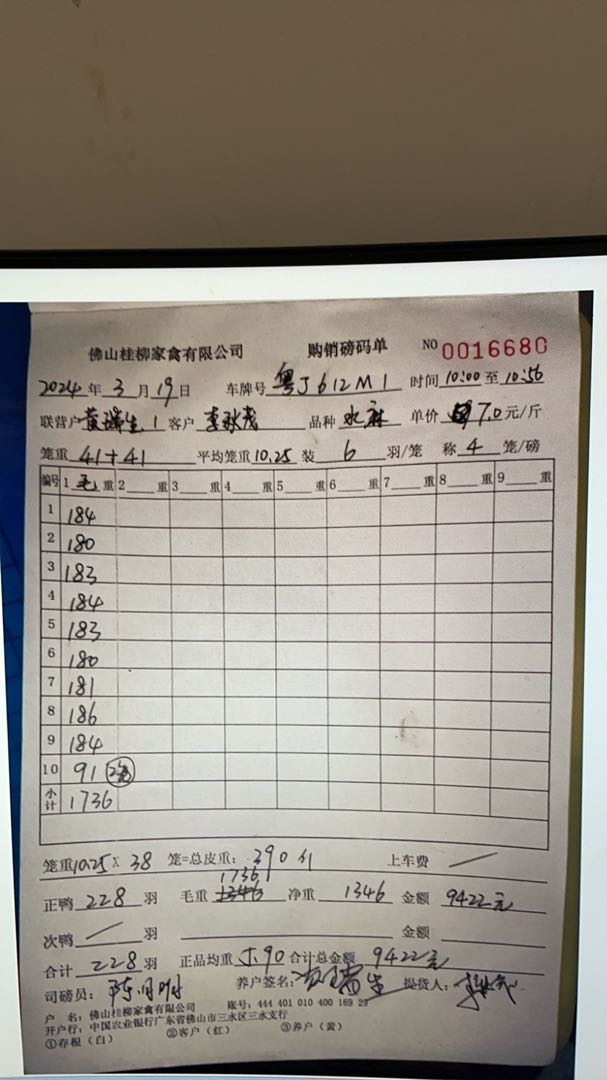 佛山桂柳家禽有限公司 购销磅码单 NO 0016680
2024 年 3 月 19 日 车牌号 粤J612M1 时间 10:00 至 10:56
联营户 黄瑞生.1 客户 李秋茂 品种 水麻 单价 7.0 元/斤
笼重 41+41 平均笼重 10.25 装 6 羽/笼 称 4 笼/磅
编号 1 毛 重 2 重 3 重 4 重 5 重 6 重 7 重 8 重 9 重
1 184
2 180
3 183
4 184
5 183
6 180
7 181
8 186
9 184
10 91
小计 1736
笼重 10.25 X 38 笼=总皮重: 390 斤 上车费 /
1736
正鸭 228 羽 毛重 1346 净重 1346 金额 9422元
次鸭 / 羽 金额
合计 228 羽 正品均重 5.90 合计总金额 9422元
司磅员: 养户签名: 提货人:
户 名: 佛山桂柳家禽有限公司 账号: 444 401 010 400 169 29
开户行: 中国农业银行广东省佛山市三水区三水支行
①存根（白） ②客户（红） ③养户（黄）